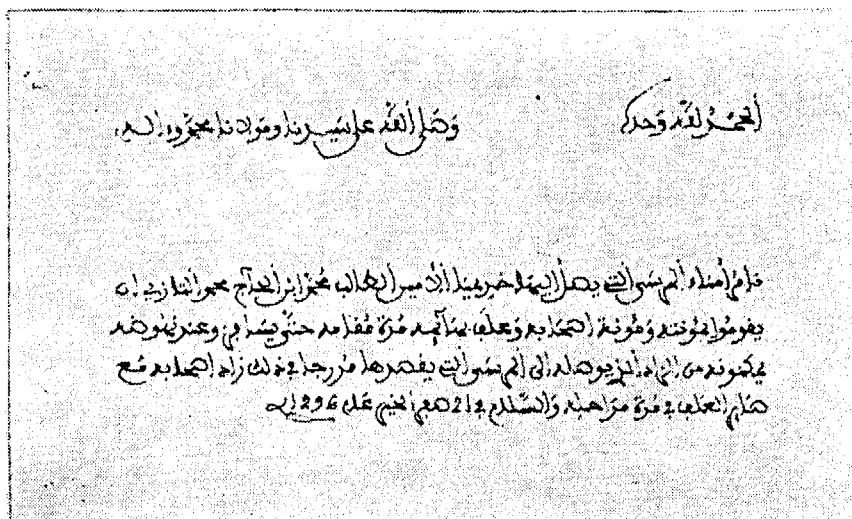 الحمد لله وحده وصلى الله على سيدنا ومولانا محمد وءاله
نامر أمناء المرسى التي يصل إليها خديمنا الأمين الطالب محمد ابن الحاج محمد التازي ان
يقوموا بمئونته ومئونة اصحابه وعلف بهائمه مدة مقامه حتى يسافر وعند نهوضه
يمكنونه من الزاد الذي يوصله إلى المرسى التي يقصدها مدرجا في ذلك زاد اصحابه مع
صائر العلف في مدة مراحله والسلام في 21 صفر الخير عام 1296